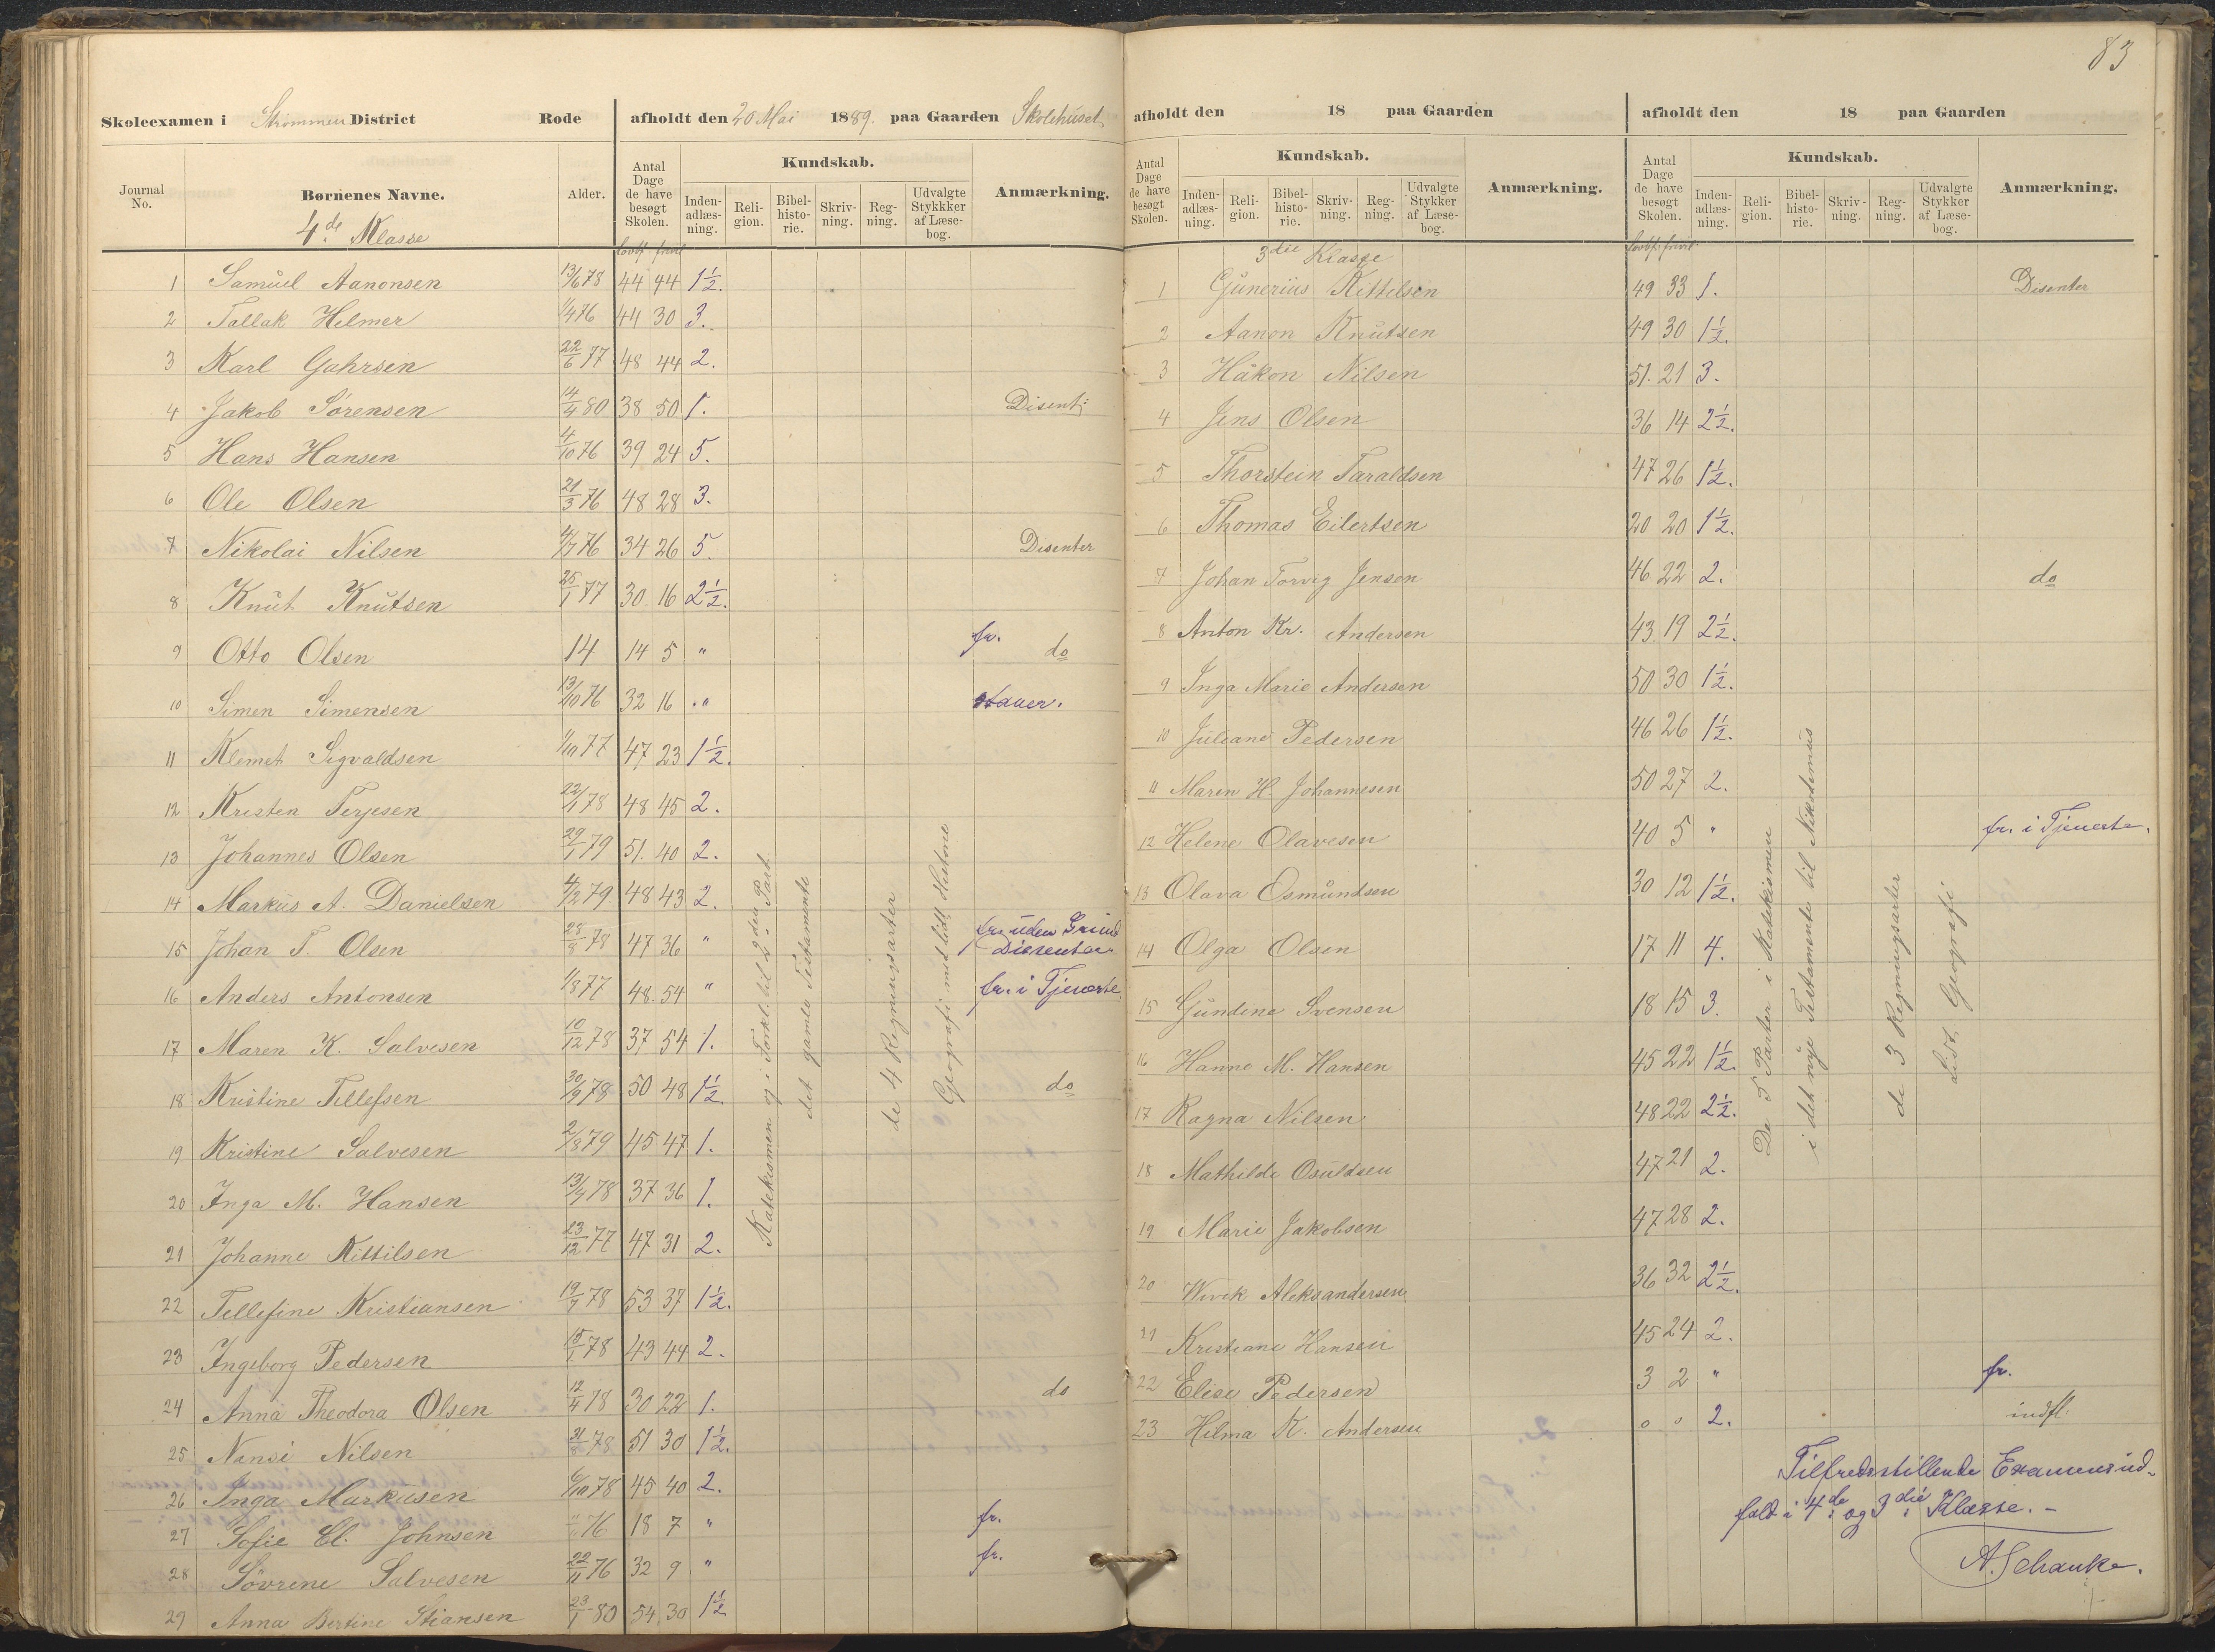 83
Skoleexamen i Strømmen District Rode afholdt den 20 Mai 1889. paa Gaarden Skolehuset
Journal No. Børnenes Navne. Alder. Antal Dage de have besøgt Skolen. Kundskab. Inden-adlæs-ning. Reli-gion. Bibel-histo-rie. Skriv-ning. Reg-ning. Udvalgte Stykkker af Læse-bog. Anmærkning.
4de Klasse
lovbf. frivil
1 Samuel Aanonsen 13/6 78 44 44 1½.
2 Tallak Helmer 1/4 76 44 30 3.
3 Karl Gahrsen 22/6 77 48 44 2.
4 Jakob Sørensen 14/4 80 38 50 1. Disent:
5 Hans Hansen 4/10 76 39 24 5.
6 Ole Olsen 21/3 76 48 28 3.
7 Nikolai Nilsen 4/7 76 34 26 5. Disenter
8 Knut Knutsen 25/1 77 30. 16 2½.
9 Otto Olsen 14 14 5 " fr. do
10 Simen Simensen 13/10 76 32 16 "
11 Klemet Sigvaldsen 1/10 77 47 23 1½.
12 Kristen Terjesen 22/1 78 48 45 2.
13 Johannes Olsen 29/1 79 51. 40 2.
14 Markus A. Danielsen 4/12 79. 48 43 2.
15 Johan T. Olsen 28/8 78 47 36 " fr. uden Grund Dissenter
16 Anders Antonsen 1/8 77 48. 54 " fr. i Tjeneste
17 Maren K. Salvesen 10/12 78 37 54 1.
18 Kristine Tellefsen 30/9 78 50 48 1½. do
19 Kristine Salvesen 2/8 79 45 47 1.
20 Inga M. Hansen 13/9 78 37 36 1.
21 Johanne Kittilsen 23/12 77 47 31 2.
22 Tellefine Kristiansen 19/7 78 53 37 1½.
23 Ingeborg Pedersen 15/1 78 43 44 2.
24 Anna Theodora Olsen 12/4 78 30 22 1. do
25 Nansi Nilsen 31/8 78 51 30 1½.
26 Inga Markusen 6/10 78 45 40 2.
27 Sofie El. Johnsen 76 18 7 " fr.
28 Sövrine Salvesen 22/11 76 32 9 " fr.
29 Anna Bertine Stiansen 23/1 80 54. 30 1½
Katekismen og i Forkl. til 2den Part.
det gamle Testamente
de 4 Regningsarter
Geografi med lidt Historie
afholdt den 18 paa Gaarden
afholdt den 18 paa Gaarden
Antal Dage de have besøgt Skolen. Kundskab. Inden-adlæs-ning. Reli-gion. Bibel-histo-rie. Skriv-ning. Reg-ning. Udvalgte Stykker af Læse-bog. Anmærkning.
Antal Dage de have besøgt Skolen. Kundskab. Inden-adlæs-ning. Reli-gion. Bibel-histo-rie. Skriv-ning. Reg-ning. Udvalgte Stykker af Læse-bog. Anmærkning.
3die Klasse lovbf. frivil.
1 Gunerius Kittelsen 49 33 1. Disenter
2 Aanon Knutsen 49 30 1½.
3 Håkon Nilsen 51. 21 3.
4 Jens Olsen 36 14 2½.
5 Thorstein Taraldsen 47 26 1½.
6 Thomas Eilertsen 20 20 1½.
7 Johan Torvig Jensen 46 22 2. do
8 Anton Kr. Andersen 43 19 2½.
9 Inga Marie Andersen 50 30 1½.
10 Juliane Pedersen 46 26 1½.
11 Maren H. Johannesen 50 27 2.
12 Helene Olavesen 40 5 " fr. i Tjeneste.
13 Olava Osmundsen 30 12 1½.
14 Olga Olsen 17 11 4.
15 Gundine Svensen 18 15 3.
16 Hanne M. Hansen 45 22 1½.
17 Ragna Nilsen 48 22 2½.
18 Mathilde Osuldsen 47 21 2.
19 Marie Jakobsen 47 28 2.
20 Wivik Aleksandersen 36 32 2½.
21 Kristiane Hansen 45 24 2.
22 Elise Pedersen 3 2 " fr.
23 Hilma K. Andersen 0 0 2. indfl.
De 5 Parter i Katekismen
i det nye Testamente til Nikodemus
de 3 Regningsarter
Lidt Geografi
Tilfredsstillende Examensud-
fald i 4de og 3die Klasse. -
A. Schanke.